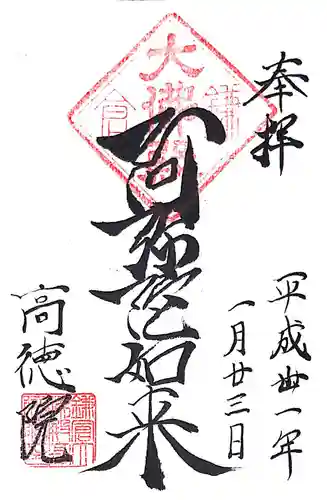 奉拝
平成廿一年
一月廿三日
大佛殿
鎌
倉
阿弥陀如来
高徳院